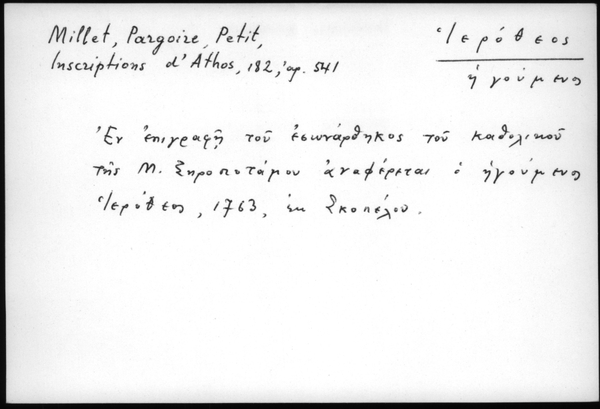 Millet, Pargoire, Petit,
Inscriptions d'Athos, 182, ἀρ. 541
Ἱερόθεος
ἡγούμενος
Ἐν ἐπιγραφῇ τοῦ ἐσωνάρθηκος τοῦ καθολικοῦ
τῆς Μ. Ξηροποτάμου ἀναφέρεται ὁ ἡγούμενος
Ἱερόθεος, 1763, ἐκ Σκοπέλου.